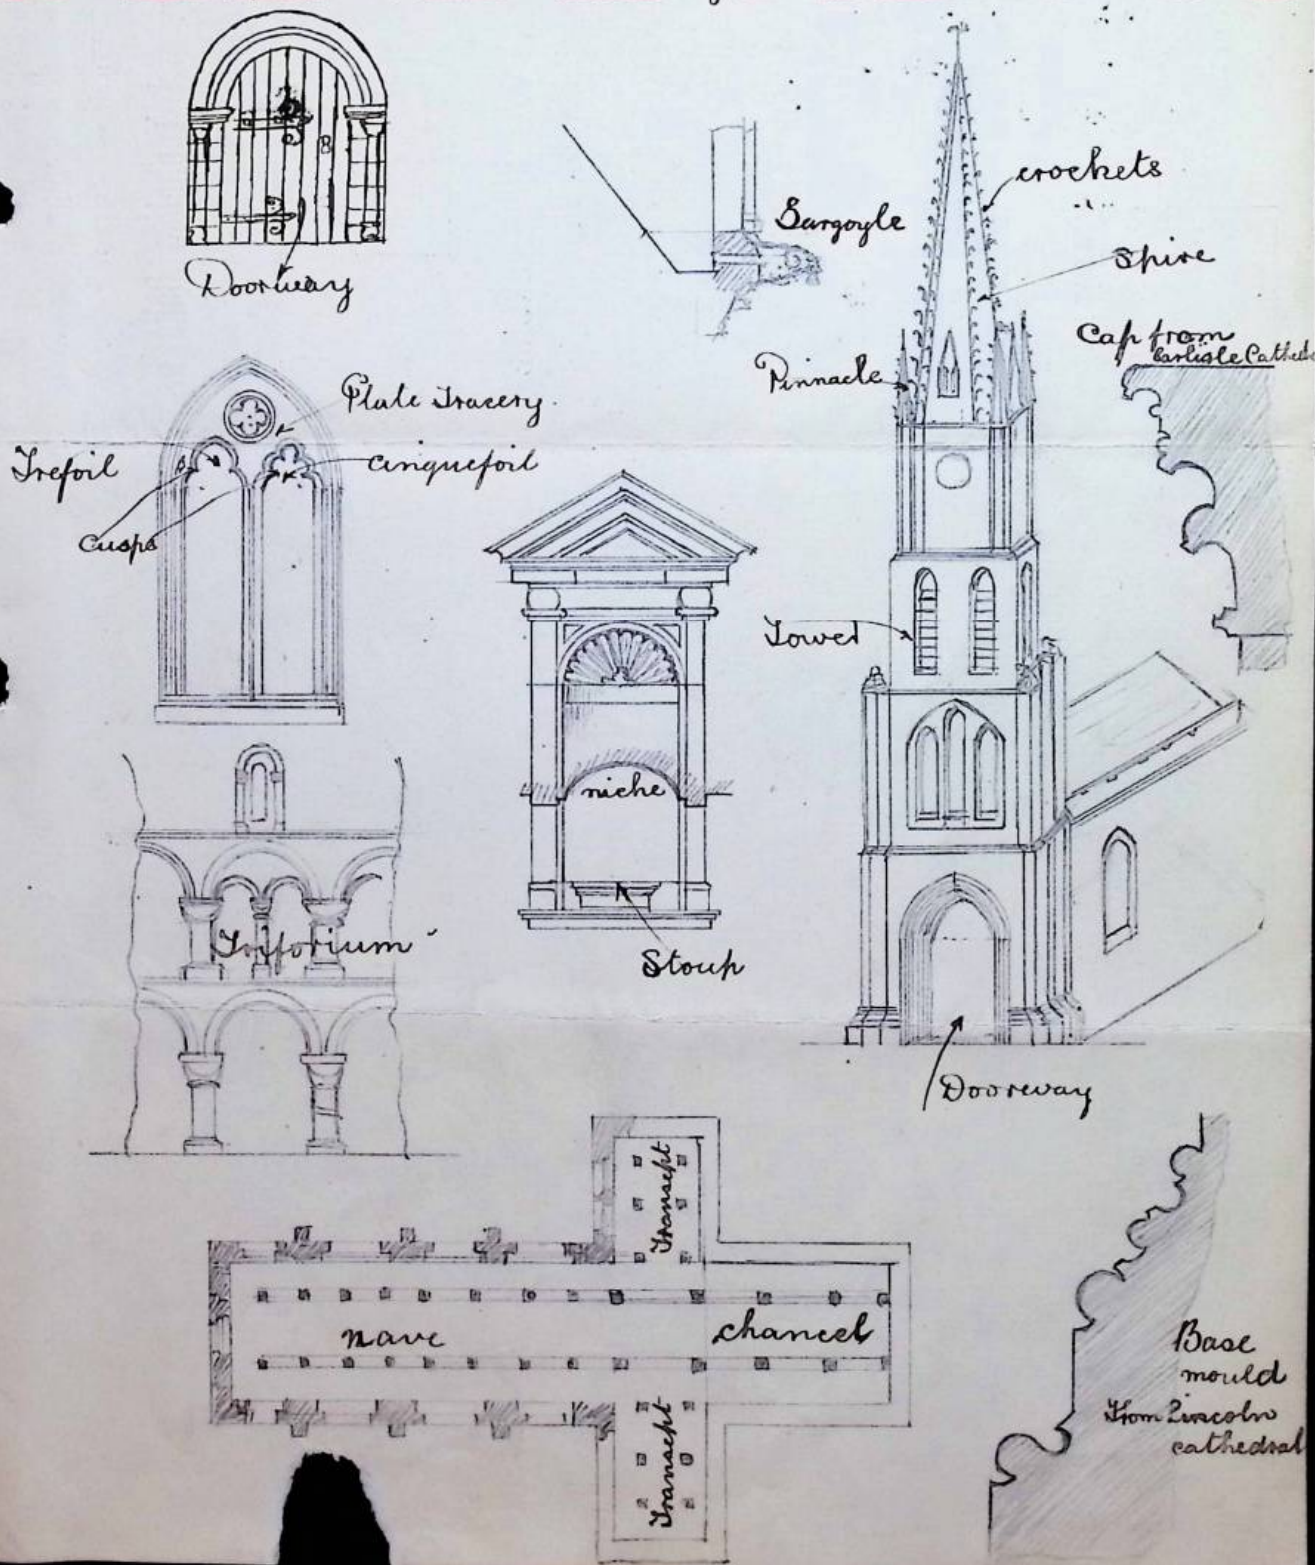 Doorway
Gargoyle
crockets
Spire
Pinnacle
Cap from
Carlisle Cathed
Plate Tracery.
Trefoil
cinquefoil
Cusps
Tower
niche
Triforium
Stoup
Doorway
Transept
nave
chancel
Transept
Base
mould
From Lincoln
cathedral